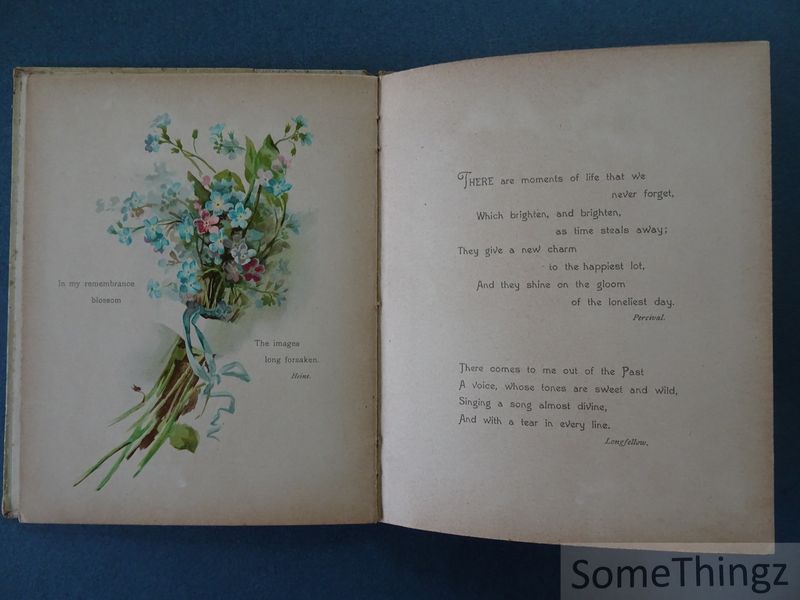 In my remembrance
blossom
The images
long forsaken.
Heine.
THERE are moments of life that we
never forget,
Which brighten, and brighten,
as time steals away;
They give a new charm
to the happiest lot,
And they shine on the gloom
of the loneliest day.
Percival.
There comes to me out of the Past
A voice, whose tones are sweet and wild,
Singing a song almost divine,
And with a tear in every line.
Longfellow.
SomeThingz